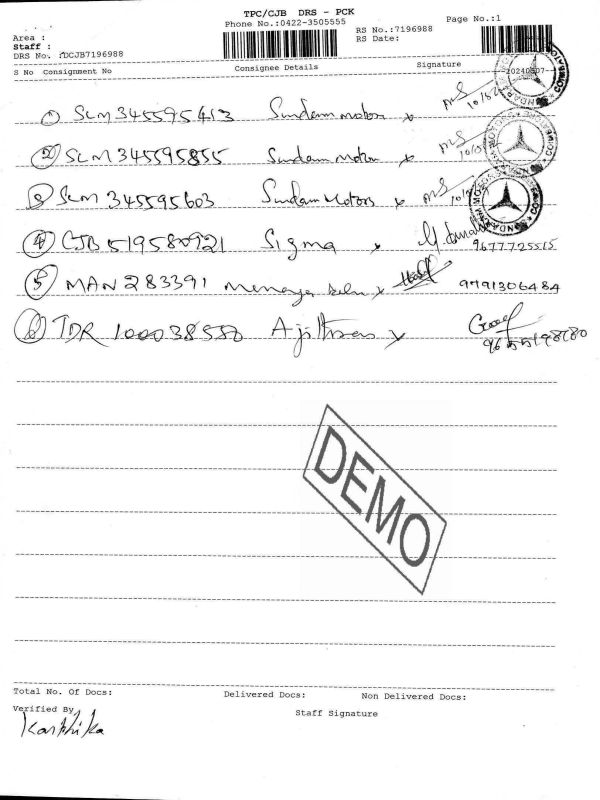 TPC/CJB DRS - PCK
Phone No.:0422-3505555
Page No.:1
Area :
RS No.:7196988
Staff :
RS Date:
DRS No. :DCJB7196988
S No Consignment No Consignee Details Signature
① SLM 345595413 Sundaram Motors x
② SLM 345595855 Sundaram Motors x
③ SLM 345595603 Sundaram Motors x
④ CJB 519580921 Sigma x 9677725515
⑤ MAN 283391 x 9791306484
⑥ TDR 100038550 x
DEMO
Total No. Of Docs: Delivered Docs: Non Delivered Docs:
Verified By
Staff Signature
Karthika